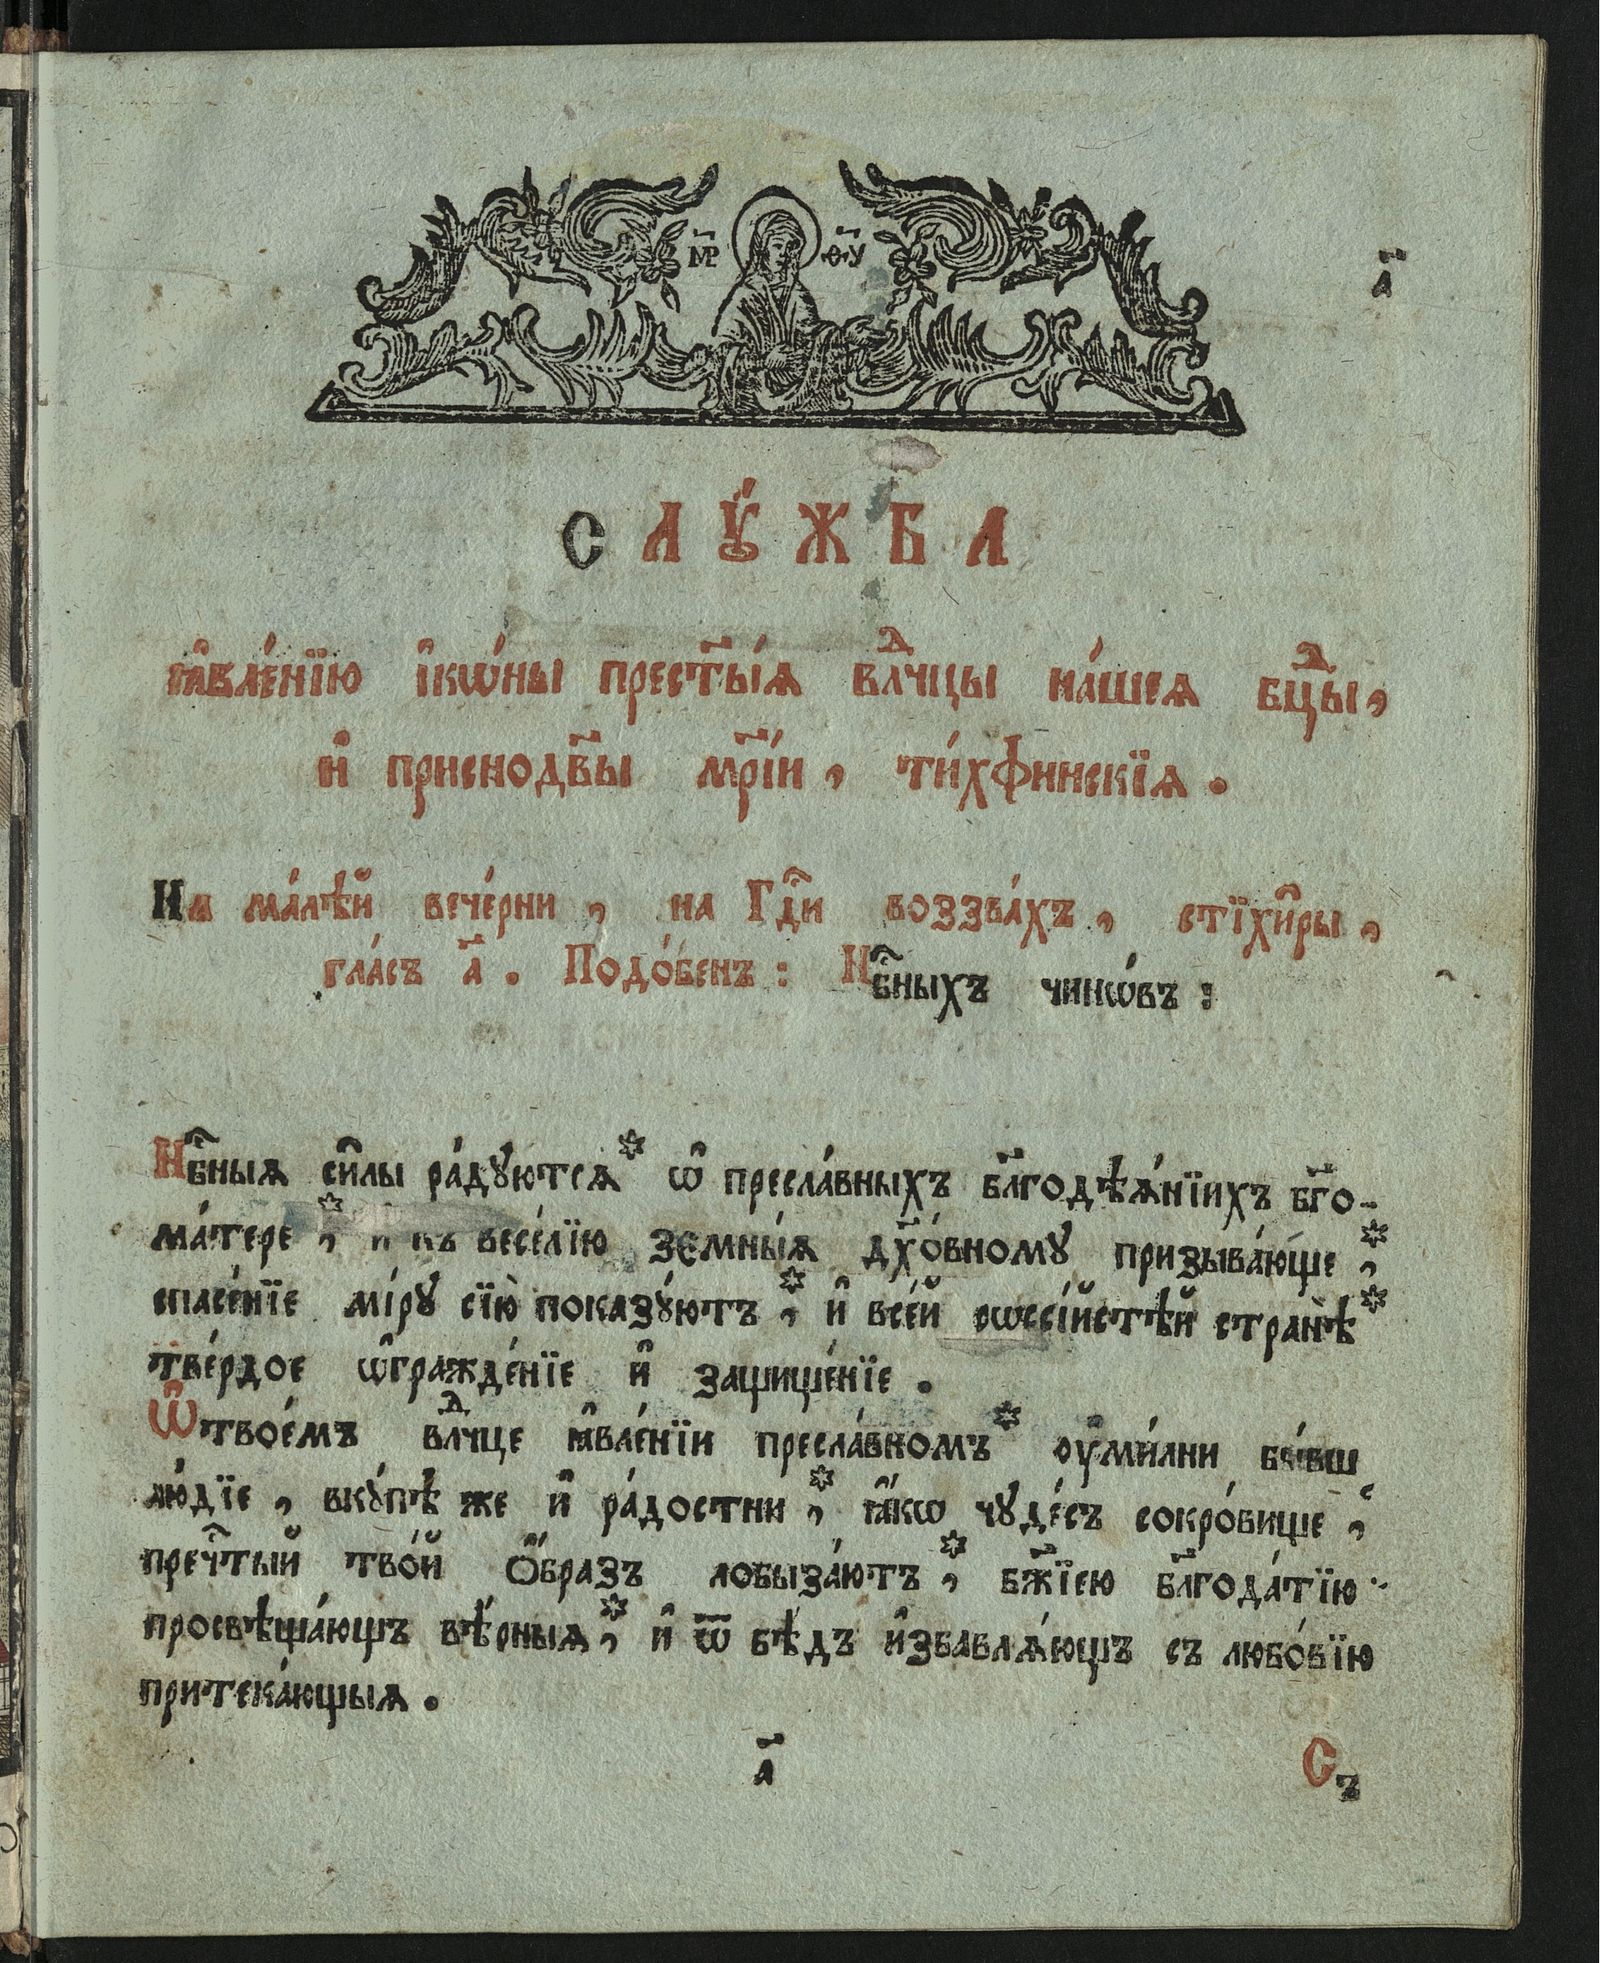 М҃Р Ѳ҃У
а҃
СЛꙋ́ЖБА
ꙗ҆вле́нїю і҆кѡ́ны прест҃ы́ѧ влⷣчцы на́шеѧ бцⷣы,
и҆ приснодв҃ы мр҃і́и, ти́хфинскїѧ.
На ма́лѣй вече́рни, на Гдⷭ҇и воззва́хъ, стїхи̑ры,
гла́съ а҃. Подо́бенъ: Нбⷭ҇ныхъ чинѡ́въ:
Нбⷭ҇ныѧ си̑лы ра́дуютсѧ* ѡ҆ пресла́вныхъ бл҃годѣѧ́нїихъ бг҃о-
ма́тере*, и къ весе́лїю земны́ѧ дх҃о́вному призыва́юще*,
спасе́нїе мі́ру сїю̀ показꙋ́ютъ*, и҆ все́й рѡссі́йстѣй странѣ̀*
тве́рдое ѡ҆гражде́нїе и҆ защище́нїе.
Ѡ҆ твое́мъ влⷣчце ꙗ҆вле́нїи пресла́вномъ* оу҆ми́лни бы́вш
лю́дїе, вкꙋ́пѣ же и҆ ра́достни*, ꙗ҆́кѡ чуде́съ сокро́вище,
преч҇тый тво́й Ѻ҆́бразъ лобыза́ютъ*, бж҃їею бл҃года́тїю
просвѣща́ющъ вѣ́рныѧ*, и҆ ѿ бѣ́дъ и҆збавлѧ́ющъ съ любо́вїю
притека́ющыѧ.
а҃ Съ